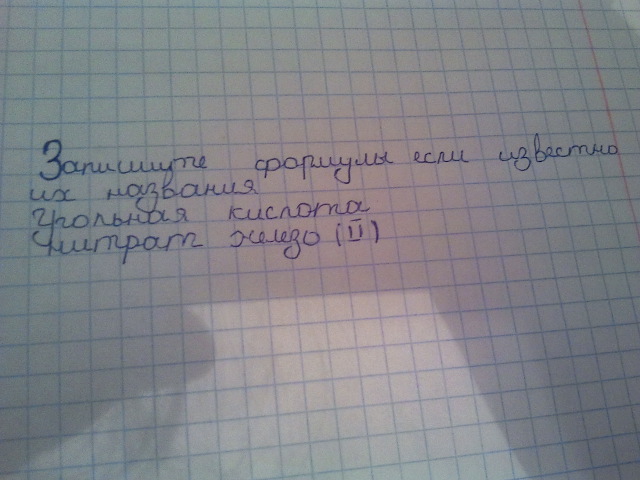 Запишите формулы если известно
их названия
Угольная кислота
Нитрат железо (II)